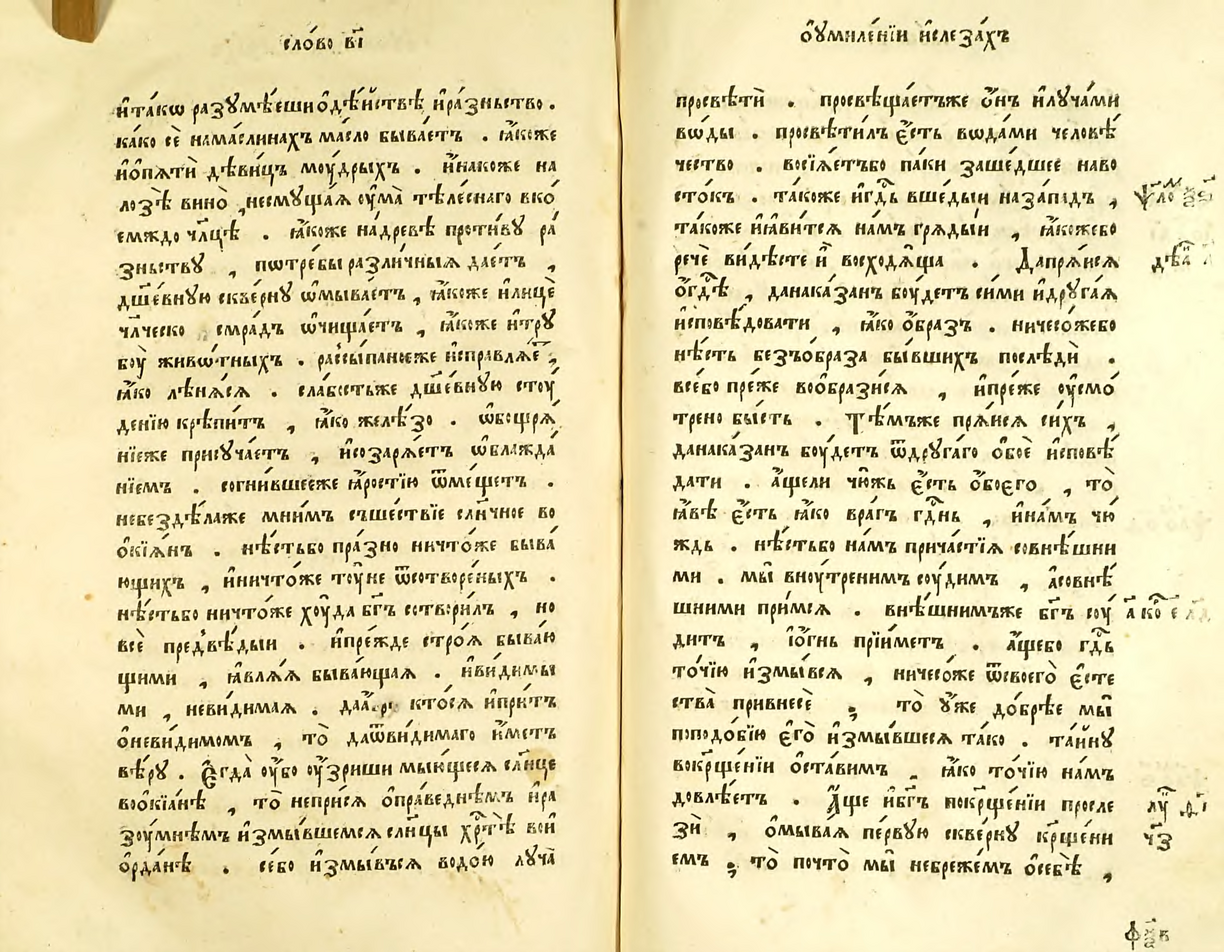 сло́во в҃і
и҆та́кѡ разꙋмѣ́еши ѻ҆дѣ́йствѣ и҆ра́зньство .
ка́ко сѐ нама́слинахъ ма́сло быва́етъ . ꙗ҆́коже
и҆ѻ҆пѧтѝ дѣ́вицъ моу́дрыхъ . и҆на́коже на
лозѣ̀ вино̀ , несмꙋща́ѧ оу҆ма̀ тѣле́снаго вко́
емждо чл҃цѣ . ꙗ҆́коже на́древѣ проти́вꙋ ра́
зньствꙋ , пѡтре́бы разли́чныѧ дае́тъ ,
дш҃е́внꙋю скве́рнꙋ ѡ҆мыва́етъ , ꙗ҆́коже и҆лицѐ
чл҃ческо смра́дъ ѡ҆чища́етъ , ꙗ҆́коже и҆трꙋ
боу̀ живѡ́тныхъ . разсы́паноеже и҆справлѧ́е ,
ꙗ҆́ко лѣнѧ́сѧ . сла́бостьже дш҃е́внꙋю стоу
де́нїю крѣпи́тъ , ꙗ҆́ко желѣ́зо . ѡ҆бощрѧ́
нїеже присꙋча́етъ , и҆созарѧ́етъ ѡ҆блажда́
нїемъ . согни́вшееже ꙗ҆́ростїю ѿме́щетъ .
небездѣ́лаже мни́мъ съше́ствїе сл҃нчное во
ѻ҆кїѧ́нъ . нѣ́стьбо пра́зно ничто́же быва́
ющихъ , и҆ничто́же тоу́не ѿсотворе́ныхъ .
нѣ́стьбо ничто́же хоу́да бг҃ъ сотвори́лъ , но
всѐ предвѣ́дыи . и҆пре́жде стро́ѧ быва́ю
щими , ꙗ҆влѧ́ѧ быва́ющаѧ . и҆ви́димы
ми , неви́димаѧ . кто́сѧ и҆при́тъ
ѻ҆неви́димомъ , то̀ даѿви́димаго и҆́метъ
вѣ́рꙋ . Є҆гда̀ оу҆́бо оу҆́зриши мы́ющесѧ сл҃нце
воѻ҆кїа́нѣ , то̀ непри́сѧ ѻ҆пра́веднѣмъ и҆ра
зоу́мнѣмъ и҆змы́вшемсѧ сл҃нцы хрⷭ҇тѣ̀ вои
ѻ҆рда́нѣ . се́бо и҆змы́въсѧ водо́ю лꙋча̀
оу҆миле́нїи и҆слеза́хъ
просвѣтѝ . просвѣща́етъже ѻ҆́нъ и҆лꙋча́ми
вѡ́ды . просвѣти́лъ є҆́сть вѡда́ми человѣ́
чество . восїѧ́етъбо па́ки заше́дшее наво
сто́къ . та́коже и҆гдⷭ҇ь вше́дыи наза́падъ ,
та́коже и҆ꙗ҆ви́тсѧ на́мъ грѧды́и , ꙗ҆́кожебо
речѐ ви́дѣсте и҆̀ восходѧ́ща . Дапрѧ́исѧ
ѻ҆гдⷭ҇ѣ , данака́занъ боу́детъ си́ми и҆дрꙋга́ѧ
и҆сповѣ́довати , ꙗ҆́ко ѻ҆́бразъ . ничесо́жебо
нѣ́сть безъѻ҆́браза бы́вшихъ послѣдѝ .
все́бо пре́же воѻбрази́сѧ , и҆пре́же оу҆смо́
трено бы́сть . Тѣ́мъже прѧ́исѧ си́хъ ,
данака́занъ боу́детъ ѿдрꙋга́го ѻ҆боѐ и҆сповѣ́
дати . а҆́щели чю́жь є҆́сть ѻ҆бо́єго , то̀
ꙗ҆́вѣ є҆́сть ꙗ҆́ко вра́гъ гдⷭ҇нь , и҆на́мъ чю́
ждь . нѣ́стьбо на́мъ прича́стїѧ совнѣ́шни
ми . мы̀ вноу́тренимъ соу́димъ , а҆совнѣ́
шними при́мсѧ . внѣ́шнимъже бг҃ъ соу́
дитъ , і҆ѻ҆́гнь прїи́метъ . а҆́щебо гдⷭ҇ь
то́чїю и҆змы́всѧ , ничесо́же ѿсвоего̀ є҆сте
ства̀ привнесѐ , то̀ ꙋ҆́же до́брѣе мы̀
поподо́бїю є҆го̀ и҆змы́вшесѧ та́ко . та́йнꙋ
вокрⷭ҇ще́нїи ѻ҆ста́вимъ , ꙗ҆́ко то́чїю на́мъ
довлѣ́етъ . А҆́ще и҆бг҃ъ покрⷭ҇ще́нїи просле
зѝ , ѻ҆мыва́ѧ пе́рвꙋю скве́рнꙋ крⷭ҇ще́ни
емъ , то̀ почто̀ мы̀ небреже́мъ ѻ҆себѣ̀ ,